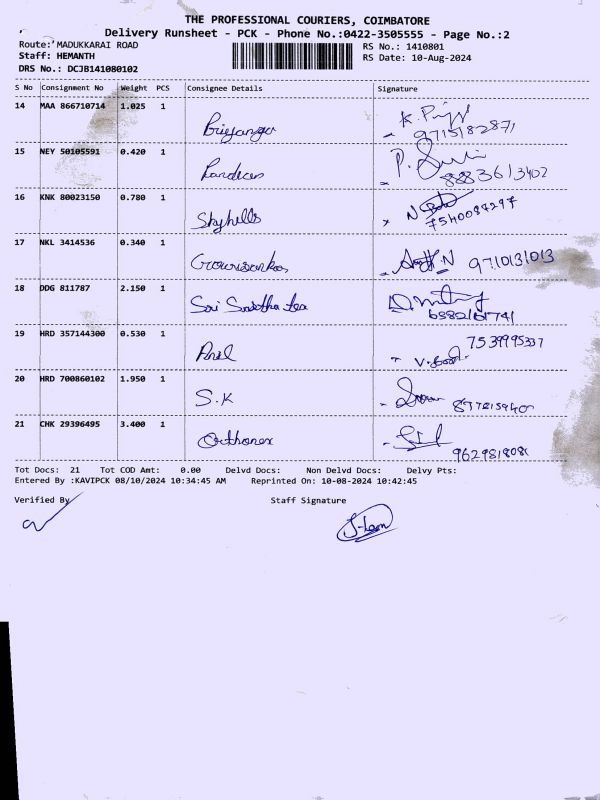 THE PROFESSIONAL COURIERS, COIMBATORE
Delivery Runsheet - PCK - Phone No.:0422-3505555 - Page No.:2
Route: MADUKKARAI ROAD RS No.: 1410801
Staff: HEMANTH RS Date: 10-Aug-2024
DRS No.: DCJB141080102
S No Consignment No Weight PCS Consignee Details Signature
14 MAA 866710714 1.025 1 Priyanga 9715182871
15 NEY 50105591 0.420 1 8883613402
16 KNK 80023150 0.780 1 Skyhells 7540084297
17 NKL 3414536 0.340 1 Gowrisankar 9710131013
18 DDG 811787 2.150 1 Sai Sastha tea
19 HRD 357144300 0.530 1 Anil
20 HRD 700860102 1.950 1 S.K
21 CHK 29396495 3.400 1 Orthonex
Tot Docs: 21 Tot COD Amt: 0.00 Delvd Docs: Non Delvd Docs: Delvy Pts:
Entered By :KAVIPCK 08/10/2024 10:34:45 AM Reprinted On: 10-08-2024 10:42:45
Verified By Staff Signature